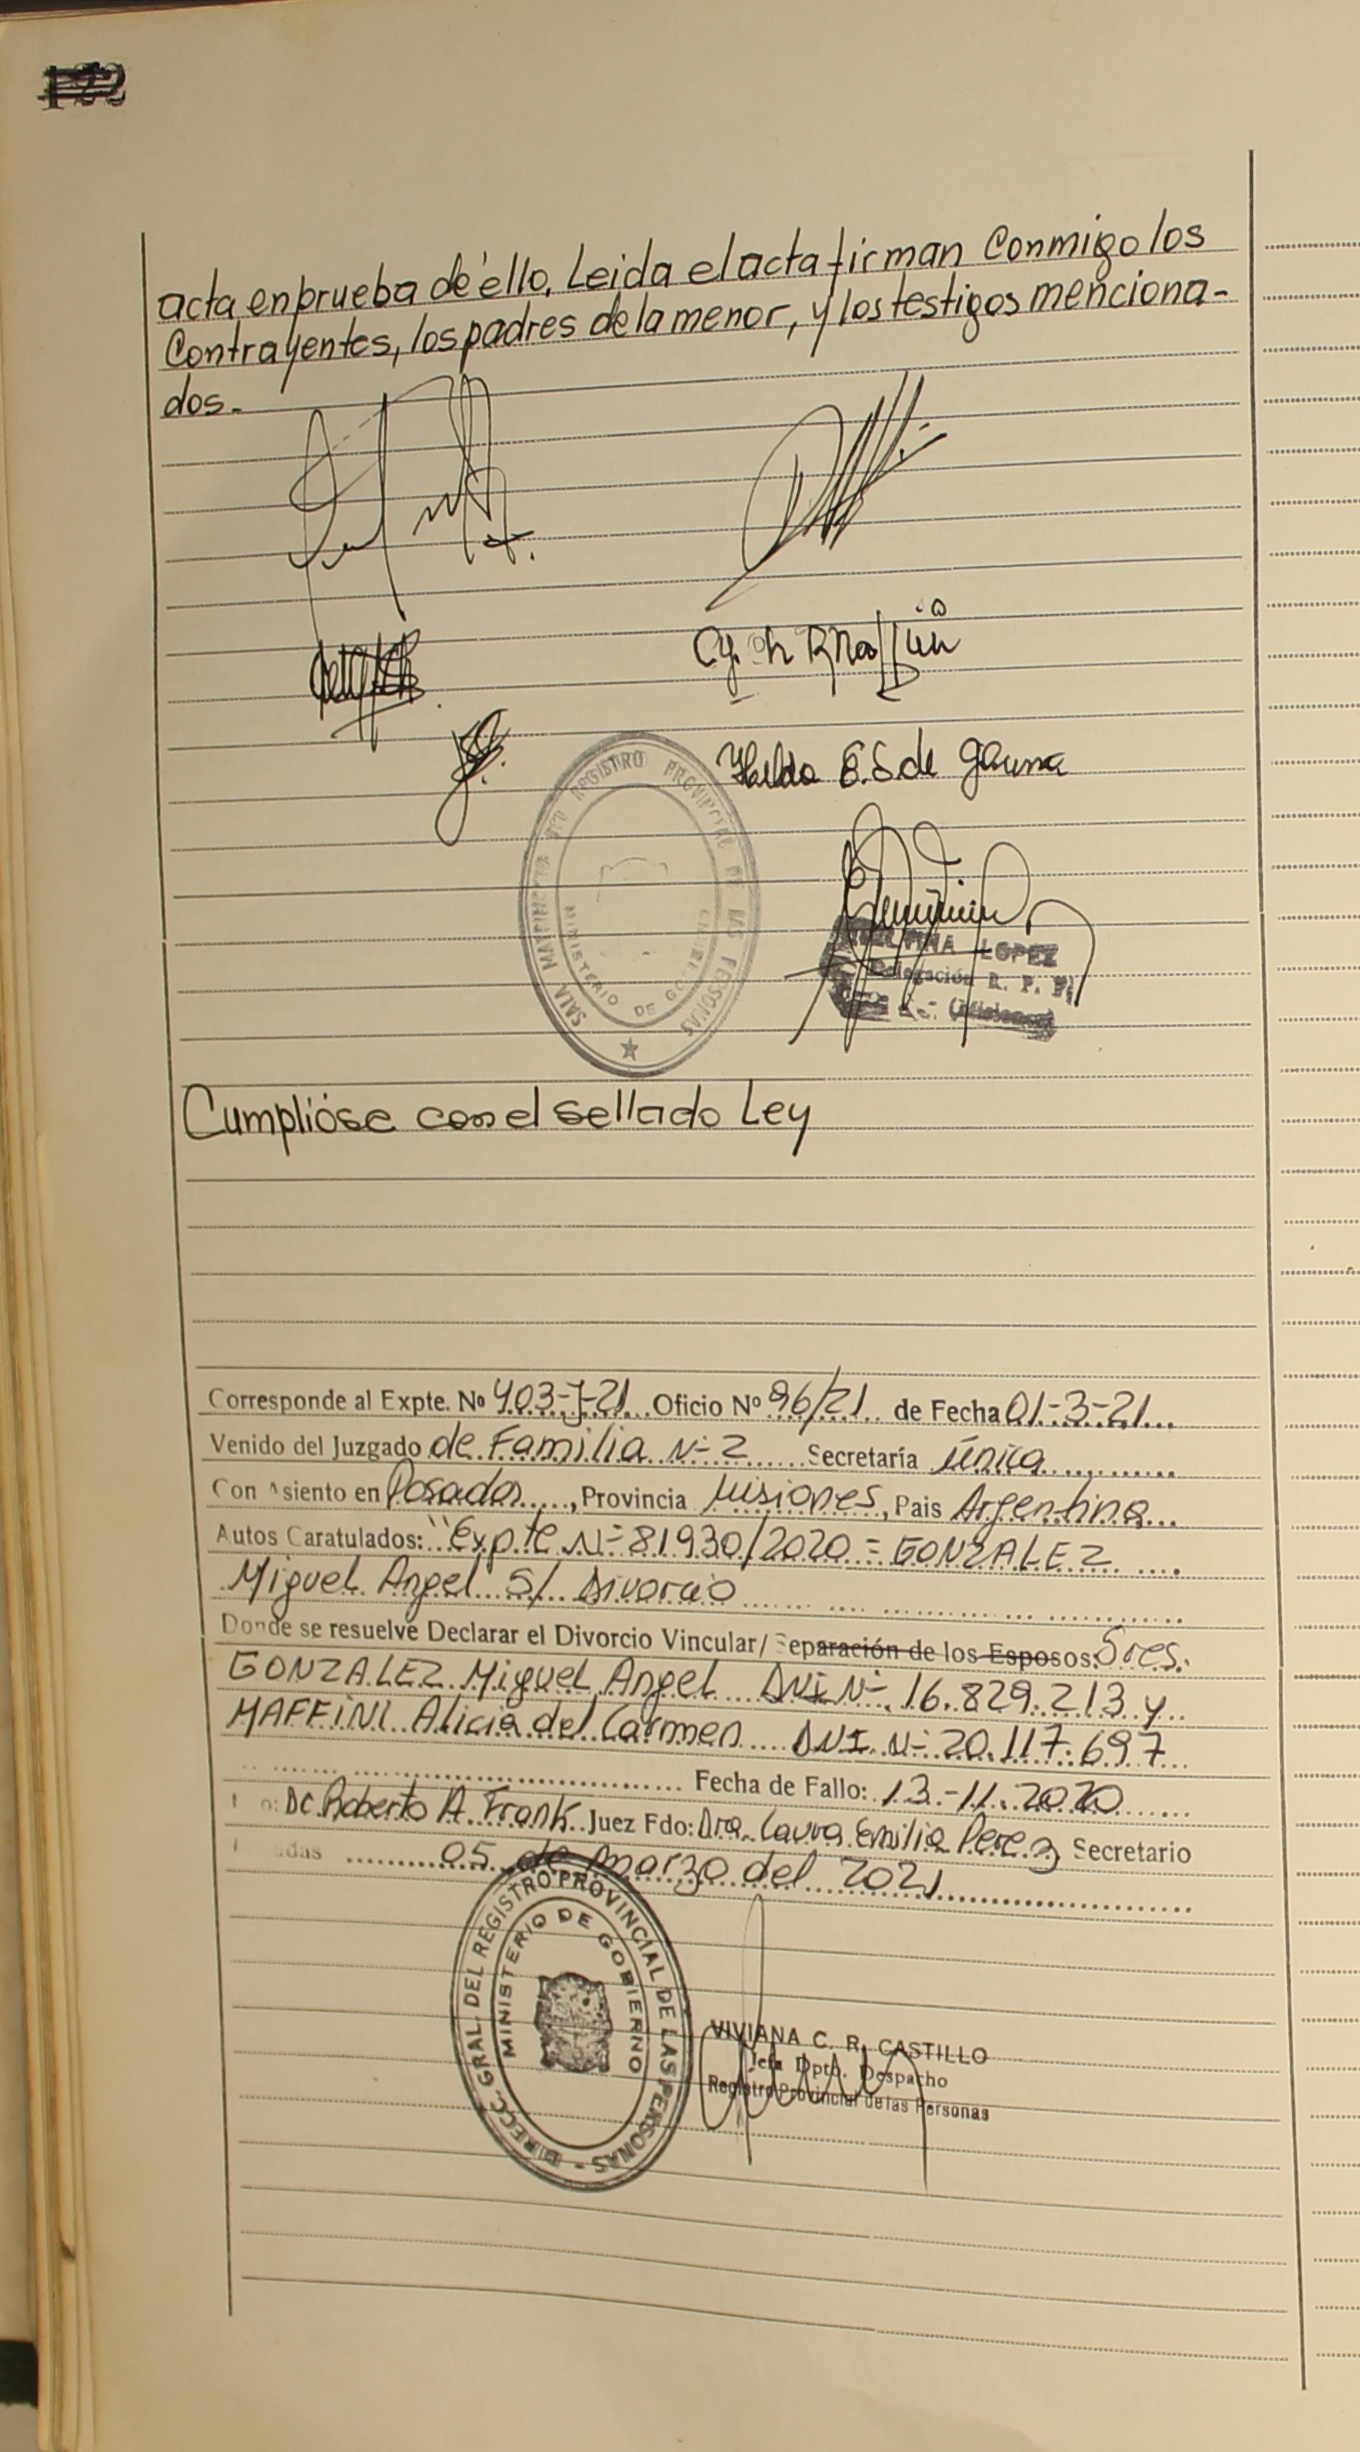 122
acta, en prueba de ello. Leida el acta firman Conmigo los
Contrayentes, los padres de la menor, y los testigos menciona-
dos.-
Hilda E. S. de Gauna
SALA MATRIMONIOS DEL REGISTRO PROVINCIAL DE LAS PERSONAS
MINISTERIO DE GOBIERNO
LOPEZ
Delegación R. P. P.
(Misiones)
Cumplióse con el sellado Ley
Corresponde al Expte. No 403-J-21 Oficio No 96/21 de Fecha 01-3-21
Venido del Juzgado de Familia N-2 Secretaría única
Con Asiento en Posadas, Provincia Misiones, Pais Argentina
Autos Caratulados: "Expte N- 81930/2020 = GONZALEZ
Miguel Angel S/ Divorcio
Donde se resuelve Declarar el Divorcio Vincular/ Separación de los Esposos: Sres.
GONZALEZ Miguel Angel DNI N- 16.829.213 y
MAFFINI Alicia del Carmen DNI N- 20.117.697
Fecha de Fallo: 13-11-2020
Dr. Roberto A. Frank Juez Fdo: Dra. Laura Emilia Perez Secretario
05 de marzo del 2021
DIRECC. GRAL. DEL REGISTRO PROVINCIAL DE LAS PERSONAS -
MINISTERIO DE GOBIERNO
VIVIANA C. R. CASTILLO
Jefa Dpto. Despacho
Registro Provincial de las Personas